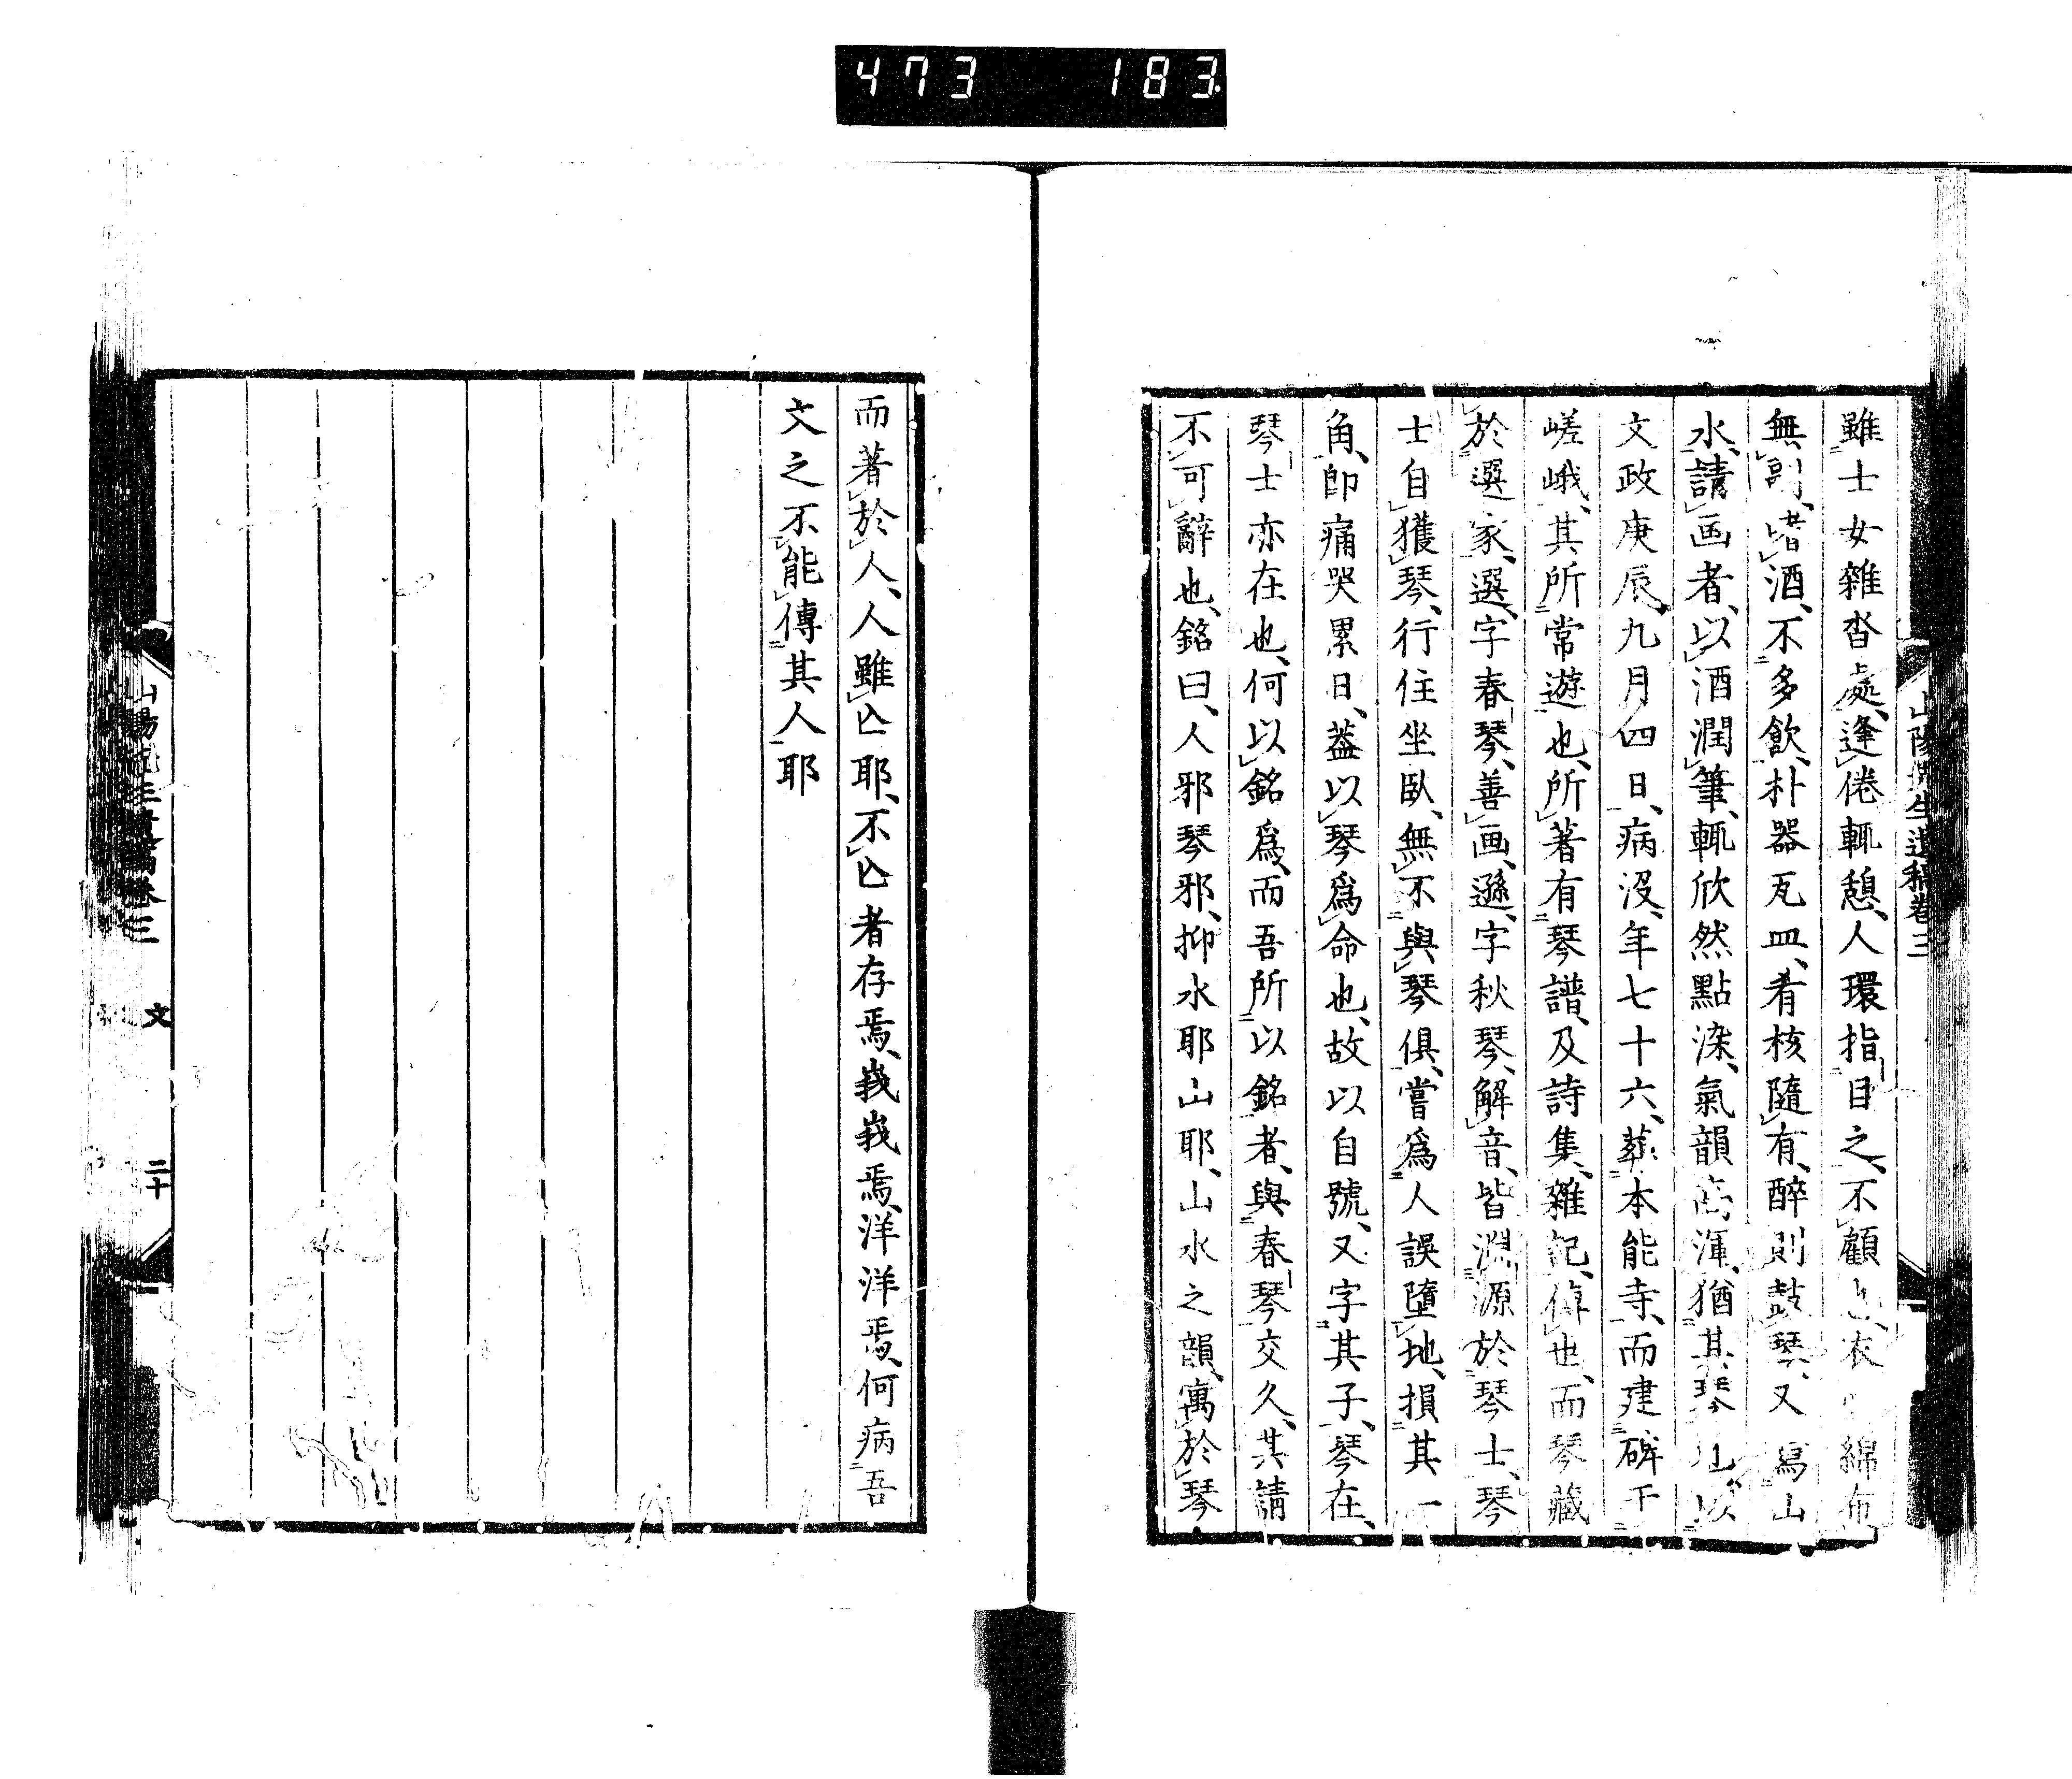 473 183
雖士女雜沓處、逢倦輒憩、人環指目之、不顧也、衣綿布
無副、嗜酒、不多飮、朴器瓦皿、肴核隨有、醉則鼓琴、又寫山
水、請画者、以酒潤筆、輒欣然點染、氣韻高渾、猶其琴也、以
文政庚辰、九月四日、病沒、年七十六、葬本能寺、而建碑于
嵯峨、其所常遊也、所著有琴譜、及詩集、雜記、倬也、而琴藏
於選家、選、字春琴、善画、遜、字秋琴、解音、皆淵源於琴士、琴
士自獲琴、行住坐臥、無不與琴俱、嘗爲人誤墮地、損其一
角、卽痛哭累日、蓋以琴爲命也、故以自號、又字其子、琴在、
琴士亦在也、何以銘爲、而吾所以銘者、與春琴交久、其請
不可辭也、銘曰、人邪琴邪、抑水耶山耶、山水之韻、寓於琴
山陽先生遺稿卷三
而著於人、人雖亾耶、不亾者存焉、峩峩焉、洋洋焉、何病吾
文之不能傳其人耶
山陽先生遺稿卷三 文 二十